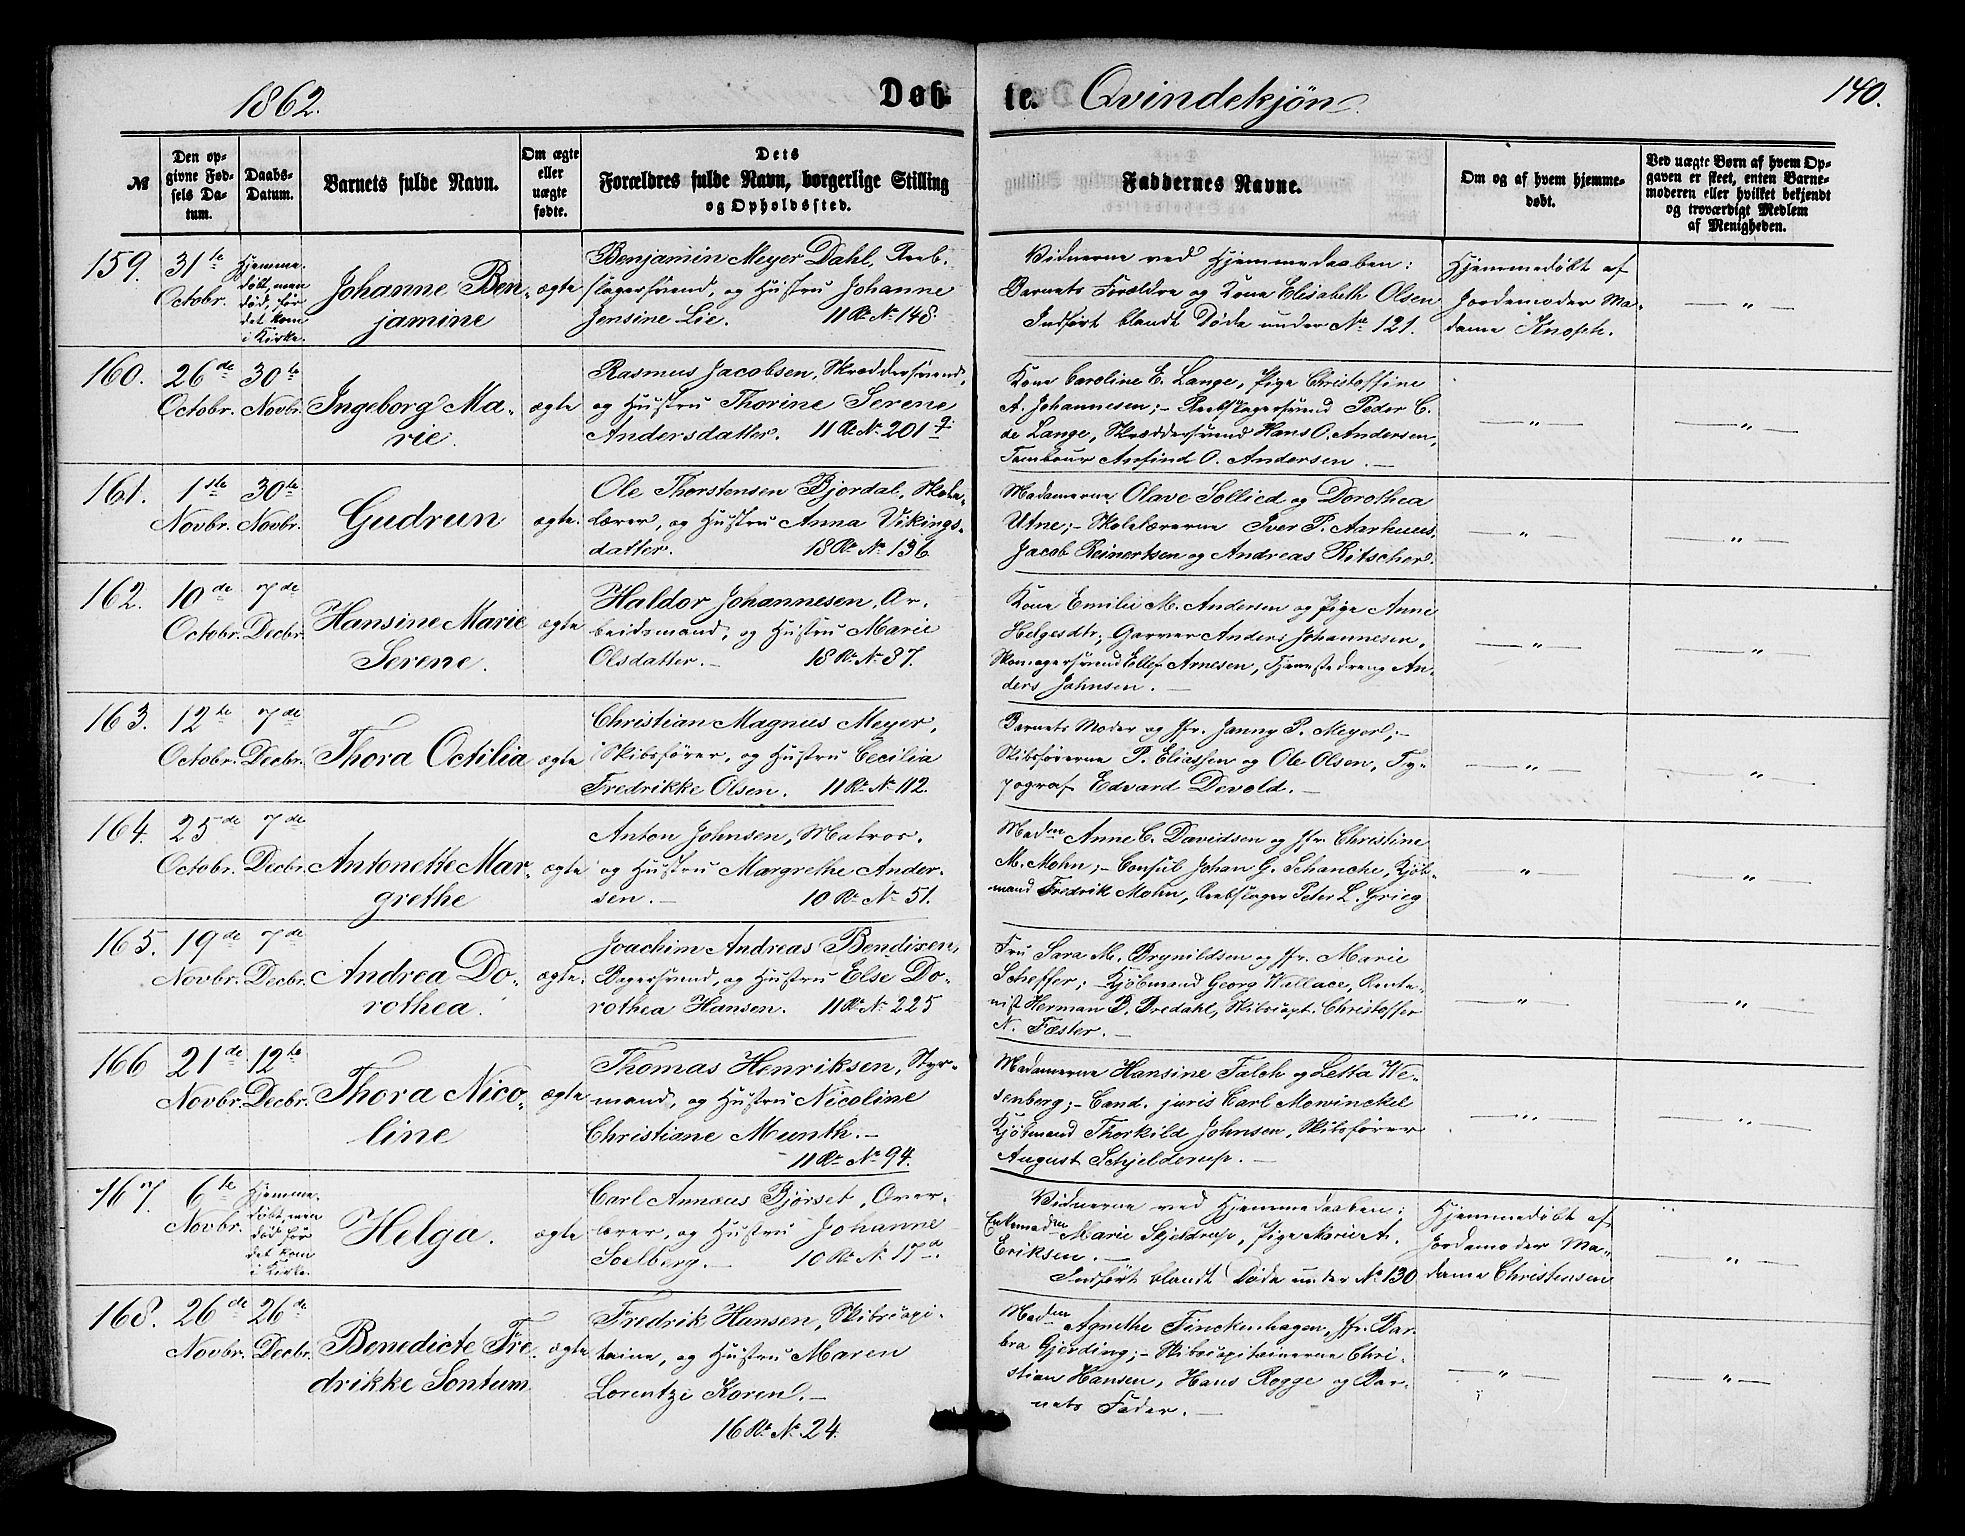 1862.
Døb-
te.
Qvindekjøn.
140.
№
Den op-
givne Fød-
sels Da-
tum.
Daabs-
Datum.
Barnets fulde Navn.
Om ægte
eller
uægte
fødte.
Dets
Forældres fulde Navn, borgerlige Stilling
og Opholdssted.
Faddernes Navne.
Om og af hvem hjemme-
døbt.
Ved uægte Børn af hvem Op-
gaven er skeet, enten Barne-
moderen eller hvilket bekjendt
og troværdigt Medlem
af Menigheden.
159.
31te
Octobr.
Hjemme-
døbt, men
død, før
det kom
i Kirke.
Johanne Ben-
jamine
ægte
Benjamin Meyer Dahl, Reeb-
slagersvend, og Hustru Johanne
Jensine Lie. 11 R. № 148.
Vidnerne ved Hjemmedaaben:
Barnets Forældre og Kone Elisabeth Olsen
Indført blandt Døde under № 121.
Hjemmedøbt af
Jordemoder Ma-
dame Knoph.
— " —
160.
26de
Octobr.
30te
Novbr.
Ingeborg Ma-
rie.
ægte
Rasmus Jacobsen, Skreddersvend,
og Hustru Thorine Serene
Andersdatter. 11 R. № 201
Kone Caroline E. Lange, Pige Christoffine
A. Johannesen; - Reebslagersvend Peder C.
de Lange, Skræddersvend Hans O. Andersen,
Tambour Arfind O. Andersen. —
— " —
— " —
161.
1ste
Novbr.
30te
Novbr.
Gudrun
ægte.
Ole Thorstensen Bjordal, Skole-
lærer, og Hustru Anna Vikings-
datter. 18 R. № 136
Madamerne Olave Sollied og Dorothea
Utne; - Skolelærerne Iver P. Aarhuus,
Jacob Reinertsen og Andreas Ritscher.
— " —
— " —
162.
10de
Octobr.
7de
Decbr.
Hansine Marie
Serene.
ægte
Haldor Johannesen, Ar-
beidsmand, og Hustru Marie
Olsdatter. — 18 R. № 37.
Kone Emilie M. Andersen og Pige Anne
Helgesdtr; Garver Anders Johannesen,
Skomagersvend Ellef Arnesen, Tjenestedreng An-
ders Johnsen. —
— " —
— " —
163.
12te
Octobr.
7de
Decbr.
Thora Octilia
ægte
Christian Magnus Meyer,
Skibsfører, og Hustru Cecilia
Fredrikke Olsen. 11 R. № 112.
Barnets Moder og Jfr. Janny P. Meyer; -
Skibsførerne P. Eliassen og Ole Olsen, Ty-
pograf Edvard Devold. —
— " —
— " —
164.
25de
Octobr.
7de
Decbr.
Antonette Mar-
grethe
ægte
Anton Johnsen, Matros,
og Hustru Margrethe Ander-
sen. — 10 R. № 51.
Maden Anne C. Davidsen og Jfr. Christine
M. Mohn; - Consul Johan G. Schanche, Kjøb-
mand Fredrik Mohn, Reebslager Peter L. Grieg
"
— " —
165.
19de
Novbr.
7de
Decbr.
Andrea Do-
rothea.
ægte.
Joachim Andreas Bendixen,
Bagersvend, og Hustru Else Do-
rothea Hansen. 11 R. № 225
Fru Sara M. Brynildsen og Jfr. Marie
Scheffer; - Kjøbmand Georg Wallace, Rente-
nist Herman B. Bredahl, Skibscapt. Christoffer
N. Fæster. —
"
"
166
21de
Novbr.
12te
Decbr.
Thora Nico-
line
ægte
Thomas Henriksen, Styr-
mand, og Hustru Nicoline
Christiane Munth. —
11 R. № 94.
Madamerne Hansine Falch og Letta We-
senberg; - Cand. juris Carl Mowinckel
Kjøbmand Thorkild Johnsen, Skibsfører
August Schjelderup. —
— " —
— " —
167.
6te
Novbr.
Hjemme-
døbt, men
død før
det kom
i Kirke.
Helga.
ægte
Carl Annæus Bjørset, Over-
lærer, og Hustru Johanne
Soelberg. — 10 R. № 17a.
Vidnerne ved Hjemmedaaben:
Enkemaden Marie Skjeldrup, Pige Marie A.
Eriksen. —
Indført blandt Døde under № 130
Hjemmedøbt af
Jordemoder Ma-
dame Christensen
— " —
168.
26de
Novbr.
26de
Decbr.
Benedicte Fre-
drikke Sontum
ægte
Fredrik Hansen, Skibscapi-
taine, og Hustru Maren
Lorentze Koren. —
16 R. № 24.
Maden Agnethe Finckenhagen, Jfr. Bar-
bra Gjerding; - Skibscapitainerne Chri-
stian Hansen, Hans Rogge og Bar-
nets Fader. —
— " —
— " —